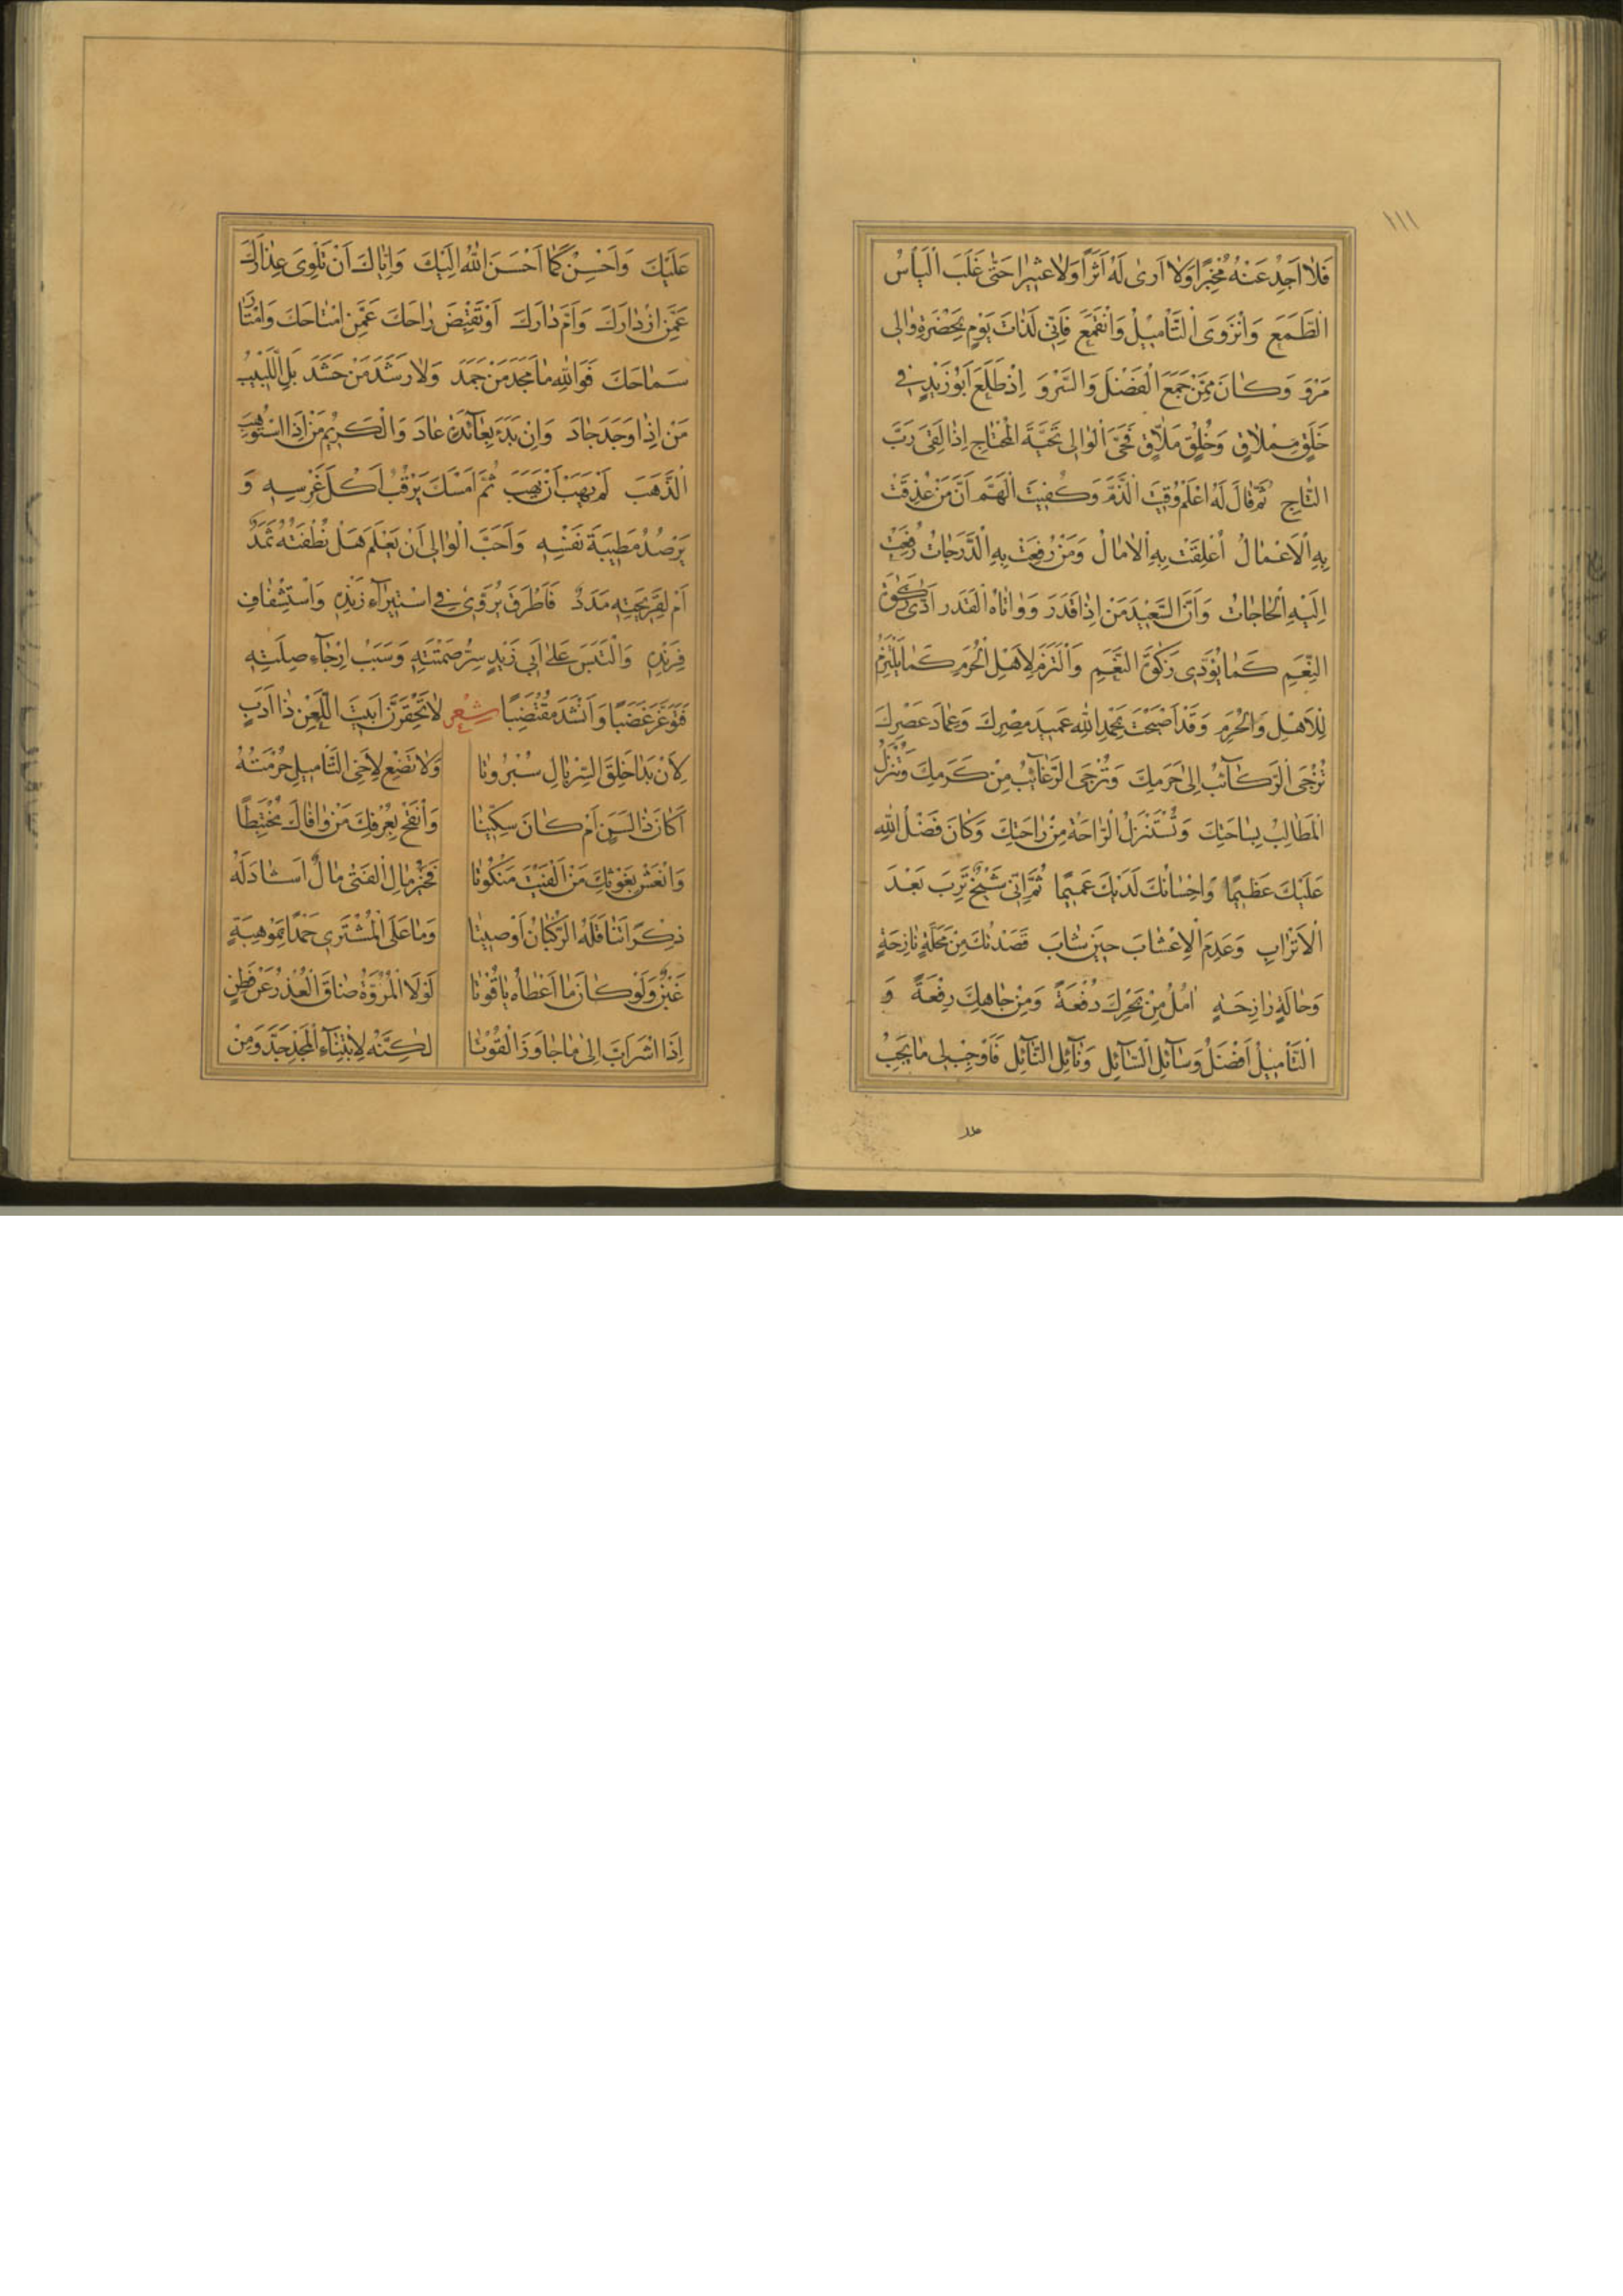 ١١١
فَلَا اَجِدُ عَنْهُ مُخْبِرًا وَلَا اَرٰى لَهُ اَثَرًا وَلَا عِثْيَرًا حَتّٰى غَلَبَ الْيَأْسُ
الطَّمَعَ وَانْزَوَى التَّأْمِيْلُ وَانْقَمَعَ فَاِنّٰى لَذَاتَ يَوْمٍ بِحَضْرَةِ وَالِى
مَرْوَ وَكَانَ مِمَّنْ جَمَعَ الْفَضْلَ وَالسَّرْوَ اِذْ طَلَعَ اَبُوْ زَيْدٍ فِى
خَلَقٍ مِمْلَاقٍ وَخُلُقٍ مَلَّاقٍ فَحَيَّى الْوَالِى تَحِيَّةَ الْمُحْتَاجِ اِذَا لَقِىَ رَبَّ
التَّاجِ ثُمَّ قَالَ لَهُ اعْلَمْ وُقِيْتَ الذَّمَّ وَكُفِيْتَ الْهَمَّ اَنَّ مَنْ عُذِقَتْ
بِهِ الْاَعْمَالُ اُعْلِقَتْ بِهِ الْاٰمَالُ وَمَنْ رُفِعَتْ بِهِ الدَّرَجَاتُ رُفِعَتْ
اِلَيْهِ الْحَاجَاتُ وَاَنَّ السَّعِيْدَ مَنْ اِذَا قَدَرَ وَوَاتَاهُ الْقَدَرُ اَدّٰى زَكٰوةَ
النِّعَمِ كَمَا يُؤَدِّى زَكٰوةَ النَّعَمِ وَالْتَزَمَ لِاَهْلِ الْحُرَمِ كَمَا يَلْتَزِمُ
لِلْاَهْلِ وَالْحُرَمِ وَقَدْ اَصْبَحْتَ بِحَمْدِ اللّٰهِ عَمِيْدَ مِصْرِكَ وَعِمَادَ عَصْرِكَ
تُزْجَى الرَّكَآئِبُ اِلٰى حَرَمِكَ وَتُرْجَى الرَّغَآئِبُ مِنْ كَرَمِكَ وَتُنْزَلُ
الْمَطَالِبُ بِسَاحَتِكَ وَتُسْتَنْزَلُ الرَّاحَةُ مِنْ رَاحَتِكَ وَكَانَ فَضْلُ اللّٰهِ
عَلَيْكَ عَظِيْمًا وَاِحْسَانُكَ لَدَيْكَ عَمِيْمًا ثُمَّ اِنّٰى شَيْخٌ تَرِبَ بَعْدَ
الْاَتْرَابِ وَعَدِمَ الْاِعْشَابَ حِيْنَ شَابَ قَصَدْتُكَ مِنْ مَحَلَّةٍ نَازِحَةٍ
وَحَالَةٍ رَازِحَةٍ اٰمُلُ مِنْ بَحْرِكَ دُفْعَةً وَمِنْ جَاهِكَ رِفْعَةً وَ
التَّأْمِيْلُ اَفْضَلُ وَسَآئِلِ السَّآئِلِ وَنَآئِلِ النَّآئِلِ فَاَوْجِبْ لِى مَا يَجِبُ
عَلَيْكَ وَاَحْسِنْ كَمَا اَحْسَنَ اللّٰهُ اِلَيْكَ وَاِيَّاكَ اَنْ تَلْوِىَ عِذَارَكَ
عَمَّنِ ازْدَارَكَ وَاَمَّ دَارَكَ اَوْ تَقْبِضَ رَاحَكَ عَمَّنِ امْتَاحَكَ وَامْتَارَ
سَمَاحَكَ فَوَاللّٰهِ مَا مَجُدَ مَنْ جَمَدَ وَلَا رَشَدَ مَنْ حَشَدَ بَلِ اللَّبِيْبُ
مَنْ اِذَا وَجَدَ جَادَ وَاِنْ بَدَءَ بِعَآئِدَةٍ عَادَ وَالْكَرِيْمُ مَنْ اِذَا اسْتُوْهِبَ
الذَّهَبَ لَمْ يَهَبْ اَنْ يَهَبَ ثُمَّ اَمْسَكَ يَرْقُبُ اُكُلَ غَرْسِهِ وَ
يَرْصُدُ مَطِيْبَةَ نَفْسِهِ وَاَحَبَّ الْوَالِى اَنْ يَعْلَمَ هَلْ نُطْفَتُهُ ثَمَدٌ
اَمْ لِقَرِيْحَتِهِ مَدَدٌ فَاَطْرَقَ يُرَوِّىْ فِى اسْتِيْرَآءِ زَنْدِهِ وَاسْتِشْفَافِ
فِرِنْدِهِ وَالْتَبَسَ عَلٰى اَبِى زَيْدٍ سِرُّ صَمْتَتِهِ وَسَبَبُ اِرْجَآءِ صِلَتِهِ
فَتَوَغَّرَ غَضَبًا وَاَنْشَدَ مُقْتَضِبًا شِعْر لَا تَحْقِرَنَّ اَبَيْتَ اللَّعْنَ ذَا اَدَبٍ
لِاَنْ بَدَا خَلَقَ السِّرْبَالِ سُبْرُوْتَا وَلَا تُضِعْ لِاَخِى التَّأْمِيلِ حُرْمَتَهُ
اَكَانَ ذَا لَسَنٍ اَمْ كَانَ سِكِّيْتَا وَانْفَحْ بِعُرْفِكَ مَنْ وَافَاكَ مُخْتَبِطًا
وَانْعَشْ بِغَوْثِكَ مَنْ اَلْفَيْتَ مَنْكُوْتَا فَخَيْرُ مَالِ الْفَتٰى مَالٌ اَشَادَ لَهُ
ذِكْرًا تَنَاقَلَهُ الرُّكْبَانُ اَوْ صِيْتَا وَمَا عَلَى الْمُشْتَرِى حَمْدًا بِمَوْهِبَةٍ
غَبْنٌ وَلَوْ كَانَ مَا اَعْطَاهُ يَاقُوْتَا لَوْلَا الْمُرُوَّةُ ضَاقَ الْعُذْرُ عَنْ فَطِنٍ
اِذَا اشْرَاَبَّ اِلٰى مَا جَاوَزَ الْقُوْتَا لٰكِنَّهُ لِابْتِنَآءِ الْمَجْدِ جَدَّ وَمِنْ